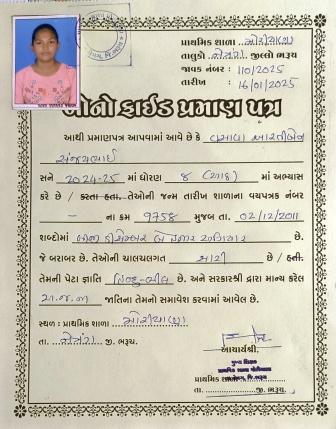 પ્રાથમિક શાળા મોરીયાણા
તાલુકો નેત્રંગ જીલ્લો ભરૂચ
જાવક નંબર : 110/2025
તારીખ : 16/01/2025
બોનો ફાઈડ પ્રમાણ પત્ર
આથી પ્રમાણપત્ર આપવામાં આવે છે કે વસાવા આરતીબેન
સંજયભાઈ
સને 2024-25 માં ધોરણ 8 (આઠ) માં અભ્યાસ
કરે છે / કરતા હતા. તેઓની જન્મ તારીખ શાળાના વયપત્રક નંબર
- ના ક્રમ 9758 મુજબ તા. 02/12/2011
શબ્દોમાં બીજી ડીસેમ્બર બે હજાર અગિયાર છે / હતી.
જે બરાબર છે. તેઓની ચાલચલગત સારી છે / હતી.
તેમની પેટા જ્ઞાતિ હિન્દુ-ભીલ છે. અને સરકારશ્રી દ્વારા માન્ય કરેલ
અ.જ.જા જાતિના તેમનો સમાવેશ કરવામાં આવેલ છે.
સ્થળ : પ્રાથમિક શાળા મોરીયાણા
તા. નેત્રંગ જી. ભરૂચ.
આચાર્યશ્રી,
મુખ્ય શિક્ષક
પ્રાથમિક શાળા
તા. જી. ભરૂચ.